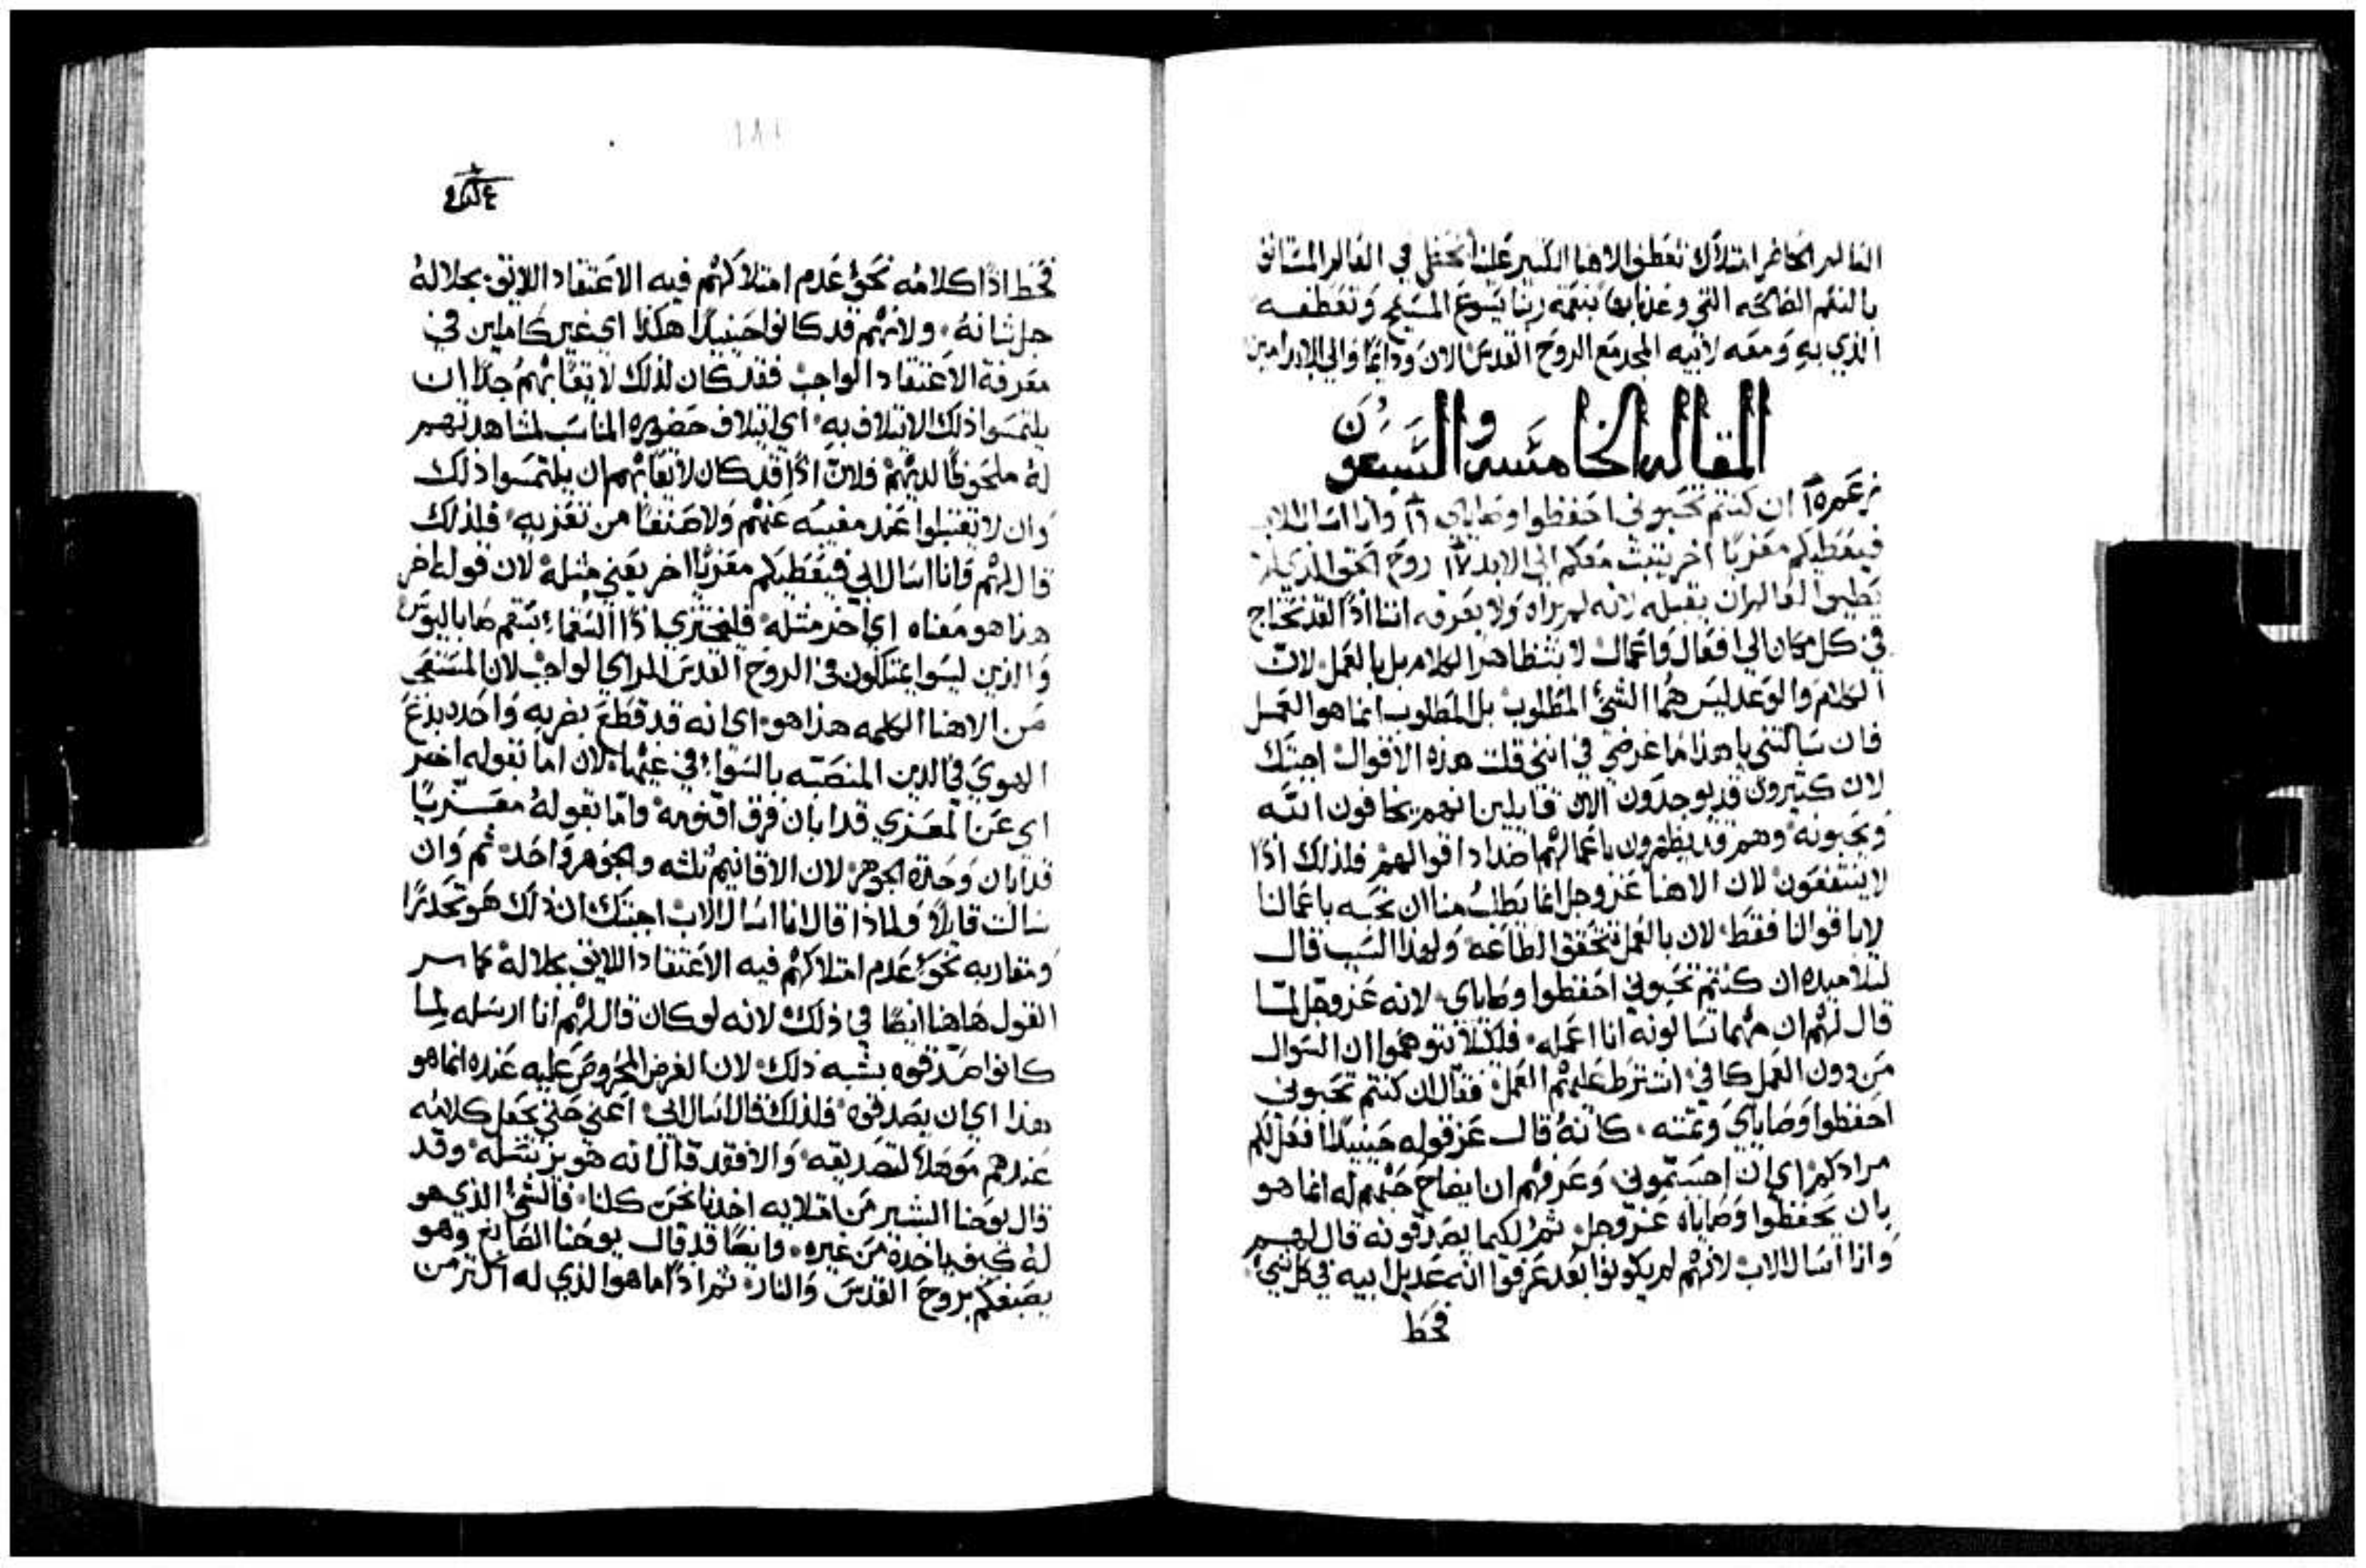 العالم الحاضر امتلاك تعطف الاهنا الكبير علينا نحفل في العالم المستانف
بالنعم الصالحه التي وعدنا بها بنعمة ربنا يسوع المسيح وتعطفه
الذي به ومعه لابيه المجد مع الروح القدس الان ودايمًا والي الابد امين
المقاله الخامسه والسبعون
١٥ ان كنتم تحبوني احفظوا وصاياي ١٦ وانا اسال الاب
فيعطيكم معزيًا اخر يثبت معكم الي الابد ١٧ روح الحق الذي لم
يطيق العالم ان يقبله لانه لم يراه ولا يعرفه اننا اذًا لقد نحتاج
في كل مكان الي افعال واعمال لا بتظاهر الكلام بل بالعمل لان
الكلام والوعد ليس هما الشي المطلوب بل المطلوب انما هو العمل
فان سالتني يا هذا ما غرضي في انني قلت هذه الاقوال اجبتك
لان كثيرون قد يوجدون الان قايلين انهم يخافون الله
ويحبونه وهم قد يظهرون باعمالهم اضداد اقوالهم فلذلك اذًا
لا ينتفعون لان الاهنا عز وجل انما يطلب منا ان نحبه باعمالنا
لا باقوالنا فقط لان بالعمل تتحقق الطاعه ولهذا السبب قال
لتلاميذه ان كنتم تحبوني احفظوا وصاياي لانه عز وجل لما
قال لهم ان مهما تسالونه انا اعمله فلكيلا يتوهموا ان السوال
من دون العمل كافي اشترط عليهم العمل فقال ان كنتم تحبوني
احفظوا وصاياي وتمته كانه قال عز قوله حينيذًا افعل لكم
مرادكم اي ان احببتموني وعرفهم ان ايضاح حبهم له انما هو
بان يحفظوا وصاياه عز وجل ثم لكيما يصدقونه قال لهم
وانا اسال الاب لانهم لم يكونوا بعد عرفوا انه عديل ابيه في كل شي
فحط
فحط اذًا كلامه نحو عدم امتلاكهم فيه الاعتقاد اللايق بجلاله
جل شانه ولانهم قد كانوا حينيذًا هكذا اي غير كاملين في
معرفة الاعتقاد الواجب فقد كان لذلك لايقًا بهم جدًا ان
يلتمسوا ذلك الايتلاف به اي ايتلاف حضوره المناسب لمشاهدتهم
له ملحوظًا لديهم فلان اذًا قد كان لايقًا بهم ان يلتمسوا ذلك
وان لا يقبلوا عند مغيبه عنهم ولا صنفًا من تعزيه فلذلك
قال لهم وانا اسال ابي فيعطيكم معزيًا اخر يعني مثله لان قوله اخر
هنا هو معناه اي اخر مثله فليختزي اذًا السقما بسقم صاباليوس
والذين ليسوا يمتلكون في الروح القدس الراي الواجب لان المستعجب
من الاهنا الكلمه هذا هو اي انه قد قطع بضربه واحده بدع
الهوي في الدين المنصبه بالسوا في غيها لان اما بقوله اخر
اي عن المعزي قد ابان فرق اقنومه واما بقوله معزيًا
قد ابان وحدة الجوهر لان الاقانيم ثلثه والجوهر واحد ثم وان
سالت قايلًا ولماذا قال انا اسال الاب اجبتك ان ذلك هو تحدرًا
ومقاربه نحو عدم امتلاكهم فيه الاعتقاد اللايق بجلاله كما سر
القول هاهنا ايضًا في ذلك لانه لو كان قال لهم انا ارسله لما
كانوا صدقوه بشبه ذلك لان الغرض المحروص عليه عنده انما هو
هذا اي ان يصدقوه فلذلك قال اسال ابي اعني حتي يجعل كلامه
عندهم موهلًا لتصديقه والا فقد قال انه هو يرسله وقد
قال يوحنا البشير من امتلايه اخذنا نحن كلنا فالشي الذي هو
له كيف ياخذه من غيره وايضًا قد قال يوحنا الصابغ وهو
يصبغكم بروح القدس والنار ثم اذًا ما هو الذي له اكثر من